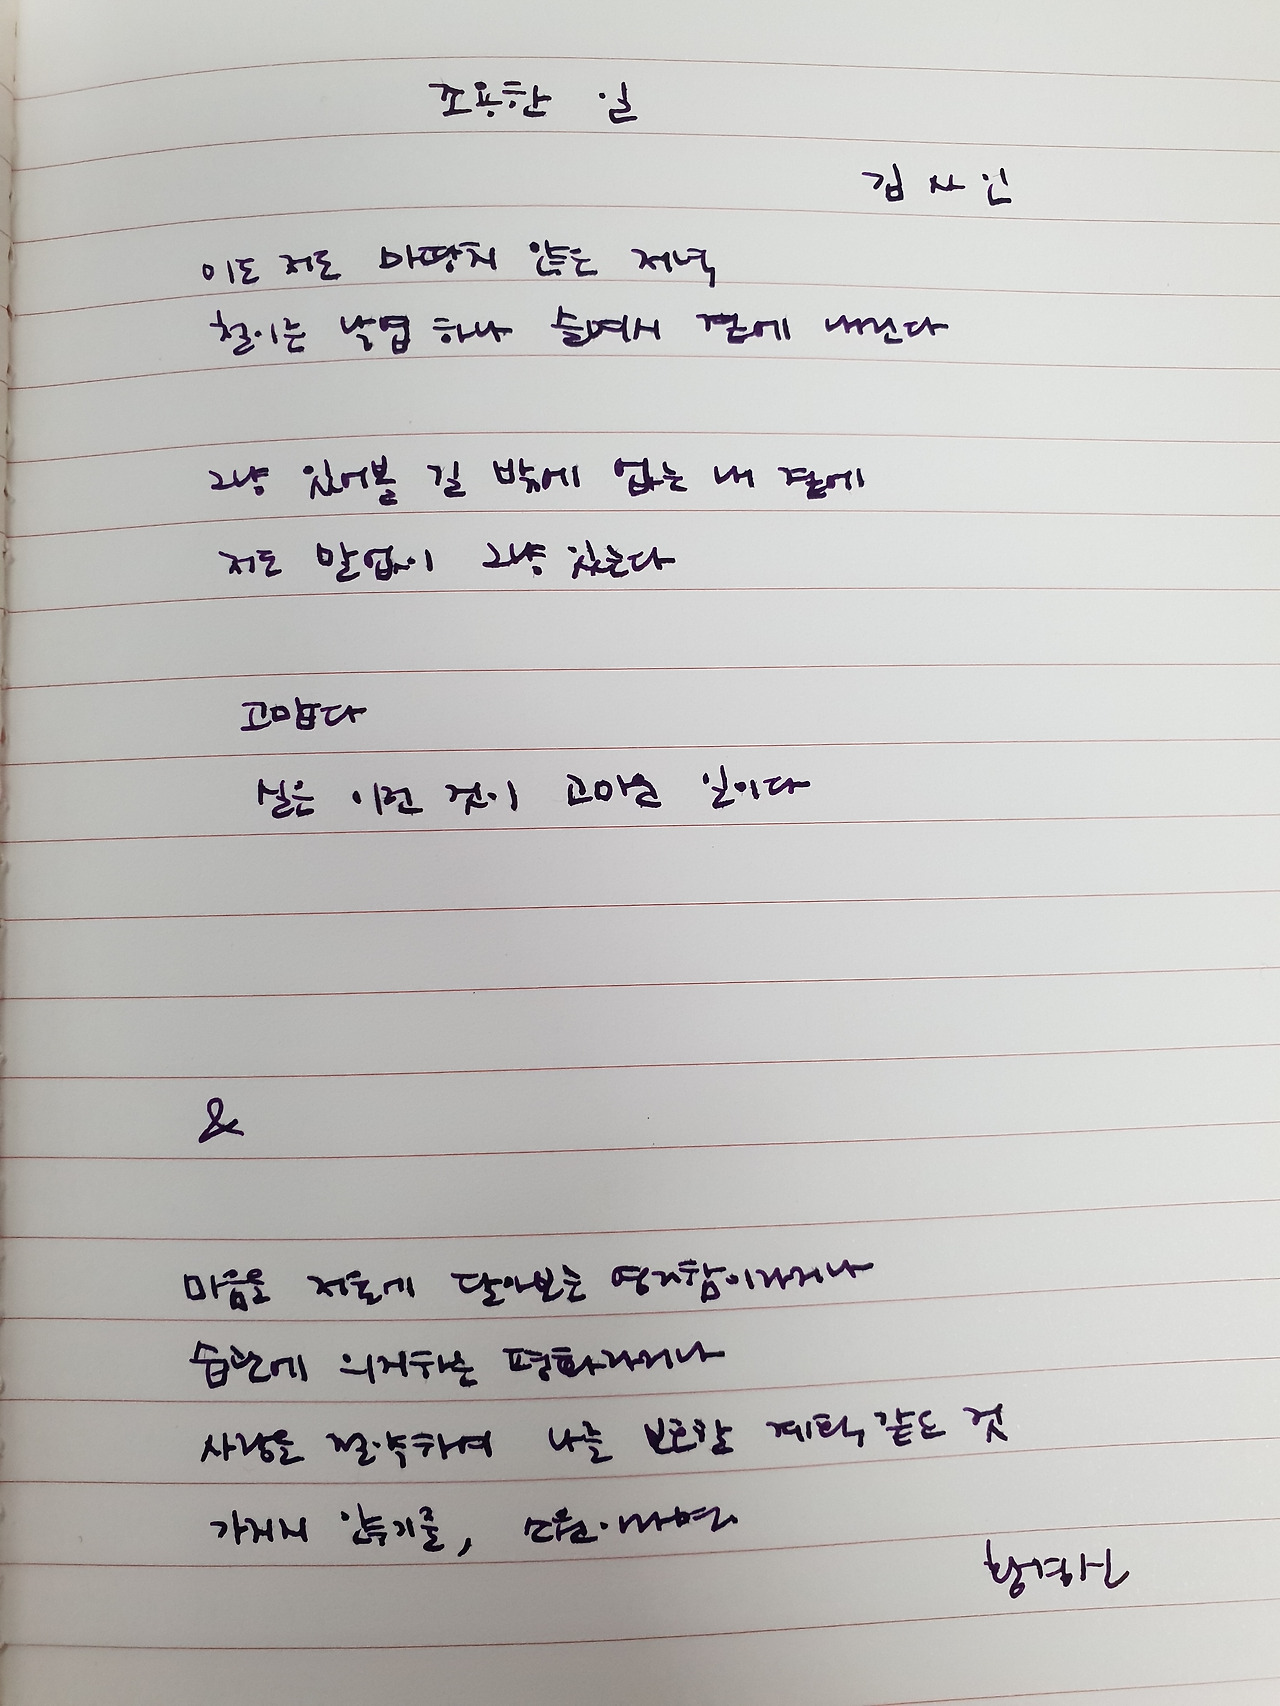 조용한 일
김사인
이도 저도 마땅치 않은 저녁
철이른 낙엽 하나 슬며시 곁에 내린다
그냥 있어볼 길 밖에 없는 내 곁에
저도 말없이 그냥 있는다
고맙다
실은 이런 것이 고마운 일이다
&
마음을 저울에 달아보는 영리함이라거나
습관에 의지하는 평화라거나
사랑을 절약하여 나를 보호할 계획 같은 것
가져서 않기를, 소원이라며
황경신